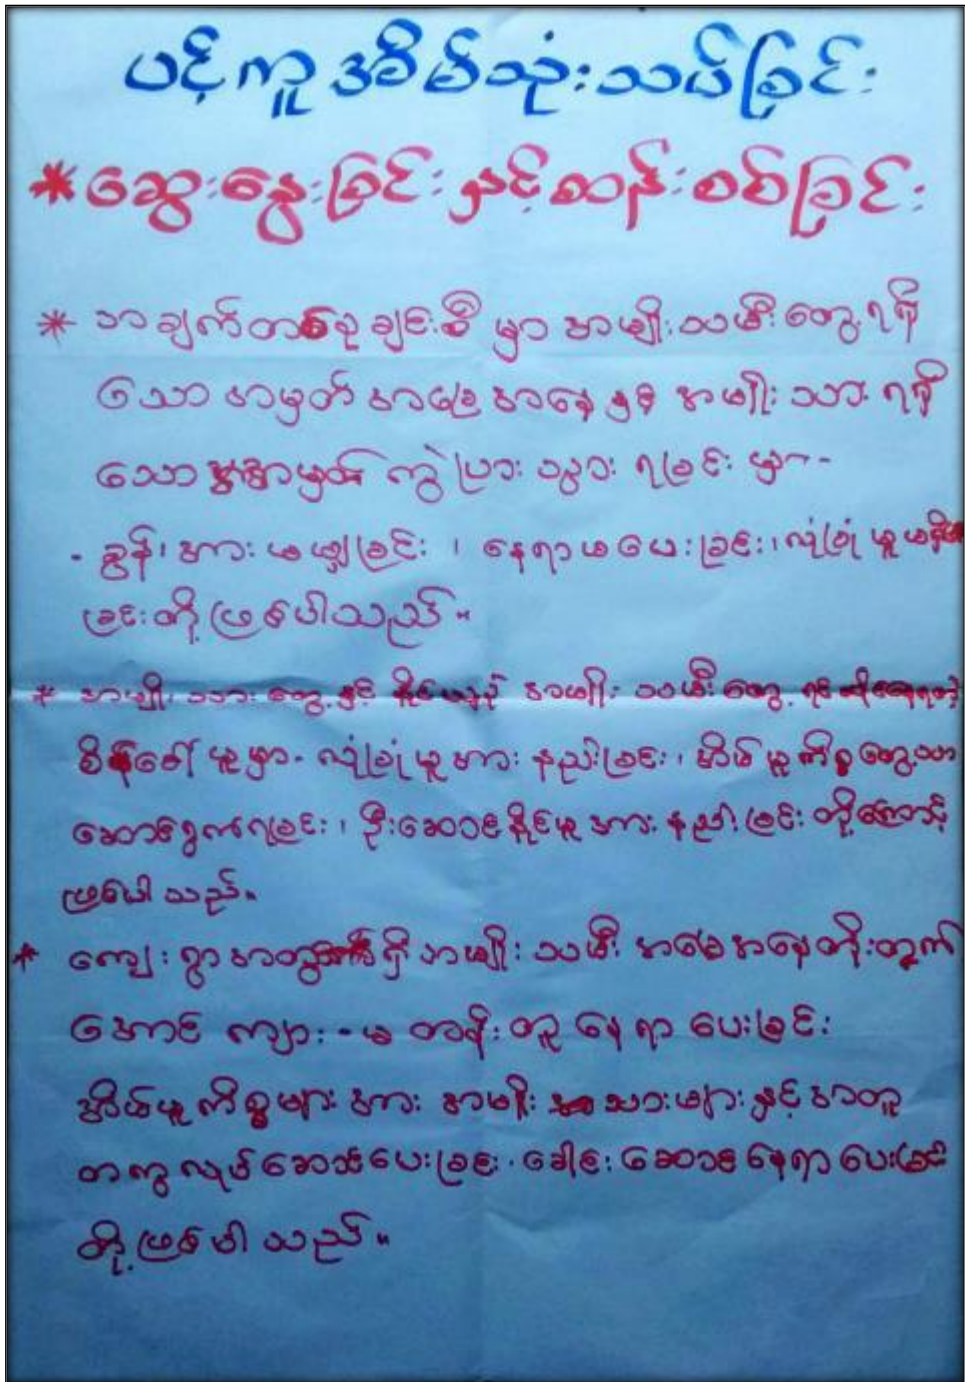 ပင့်ကူအိမ်သုံးသပ်ခြင်း
*ဆွေးနွေးခြင်းနှင့်ဆန်းစစ်ခြင်း
* အချက်တစ်ခုချင်းစီမှာ အမျိုးသမီးတွေ့ ရရှိ
သော အမှတ် အခြေအနေနှင့် အမျိုးသား ရရှိ
သော အမှတ် ကွဲပြား သွား ရခြင်း မှာ -
- ခွန်၊ အား မမျှခြင်း ၊ နေရာမပေးခြင်း၊ လုံခြုံမှုမရှိ
ခြင်းတို့ဖြစ်ပါသည်။
* အမျိုးသားတွေ့နှင့် အမျိုးသမီးတွေ့
စိန်ခေါ်မှုမှာ- လုံခြုံမှုအား နည်းခြင်း၊ အိမ်မှုကိစ္စတွေ့သာ
ဆောင်ရွက်ရခြင်း ၊ ဦးဆောင်နိုင်မှုအား နည်းခြင်း တို့ကြောင့်
ဖြစ်ပါသည်။
* ကျေးရွာအတွက် ရှိအမျိုးသမီး အခြေအနေတိုးတက်
အောင် ကျား-မ တန်းတူ နေရာပေးခြင်း
အိမ်မှုကိစ္စများအား အမျိုးသားများနှင့်အတူ
တကွလုပ်ဆောင်ပေးခြင်း၊ ခေါင်းဆောင်နေရာပေးခြင်း
တို့ဖြစ်ပါသည်။